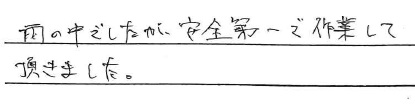 雨の中でしたが、安全第一で作業して
頂きました。